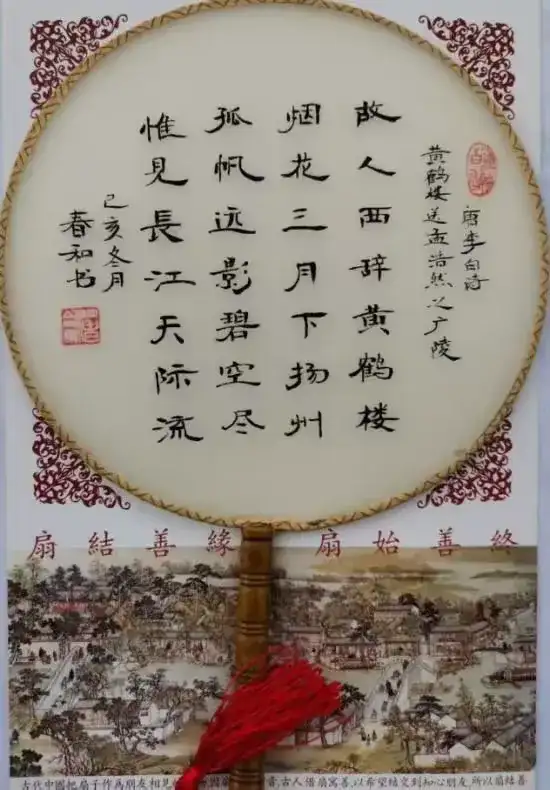 唐李白诗
黄鹤楼送孟浩然之广陵
故人西辞黄鹤楼
烟花三月下扬州
孤帆远影碧空尽
惟见長江天际流
己亥冬月
春和书
扇結善緣 扇始善終
古代中國把扇子作爲朋友相見的
音,古人借扇寓善,以希望結交到知心朋友,所以扇結善